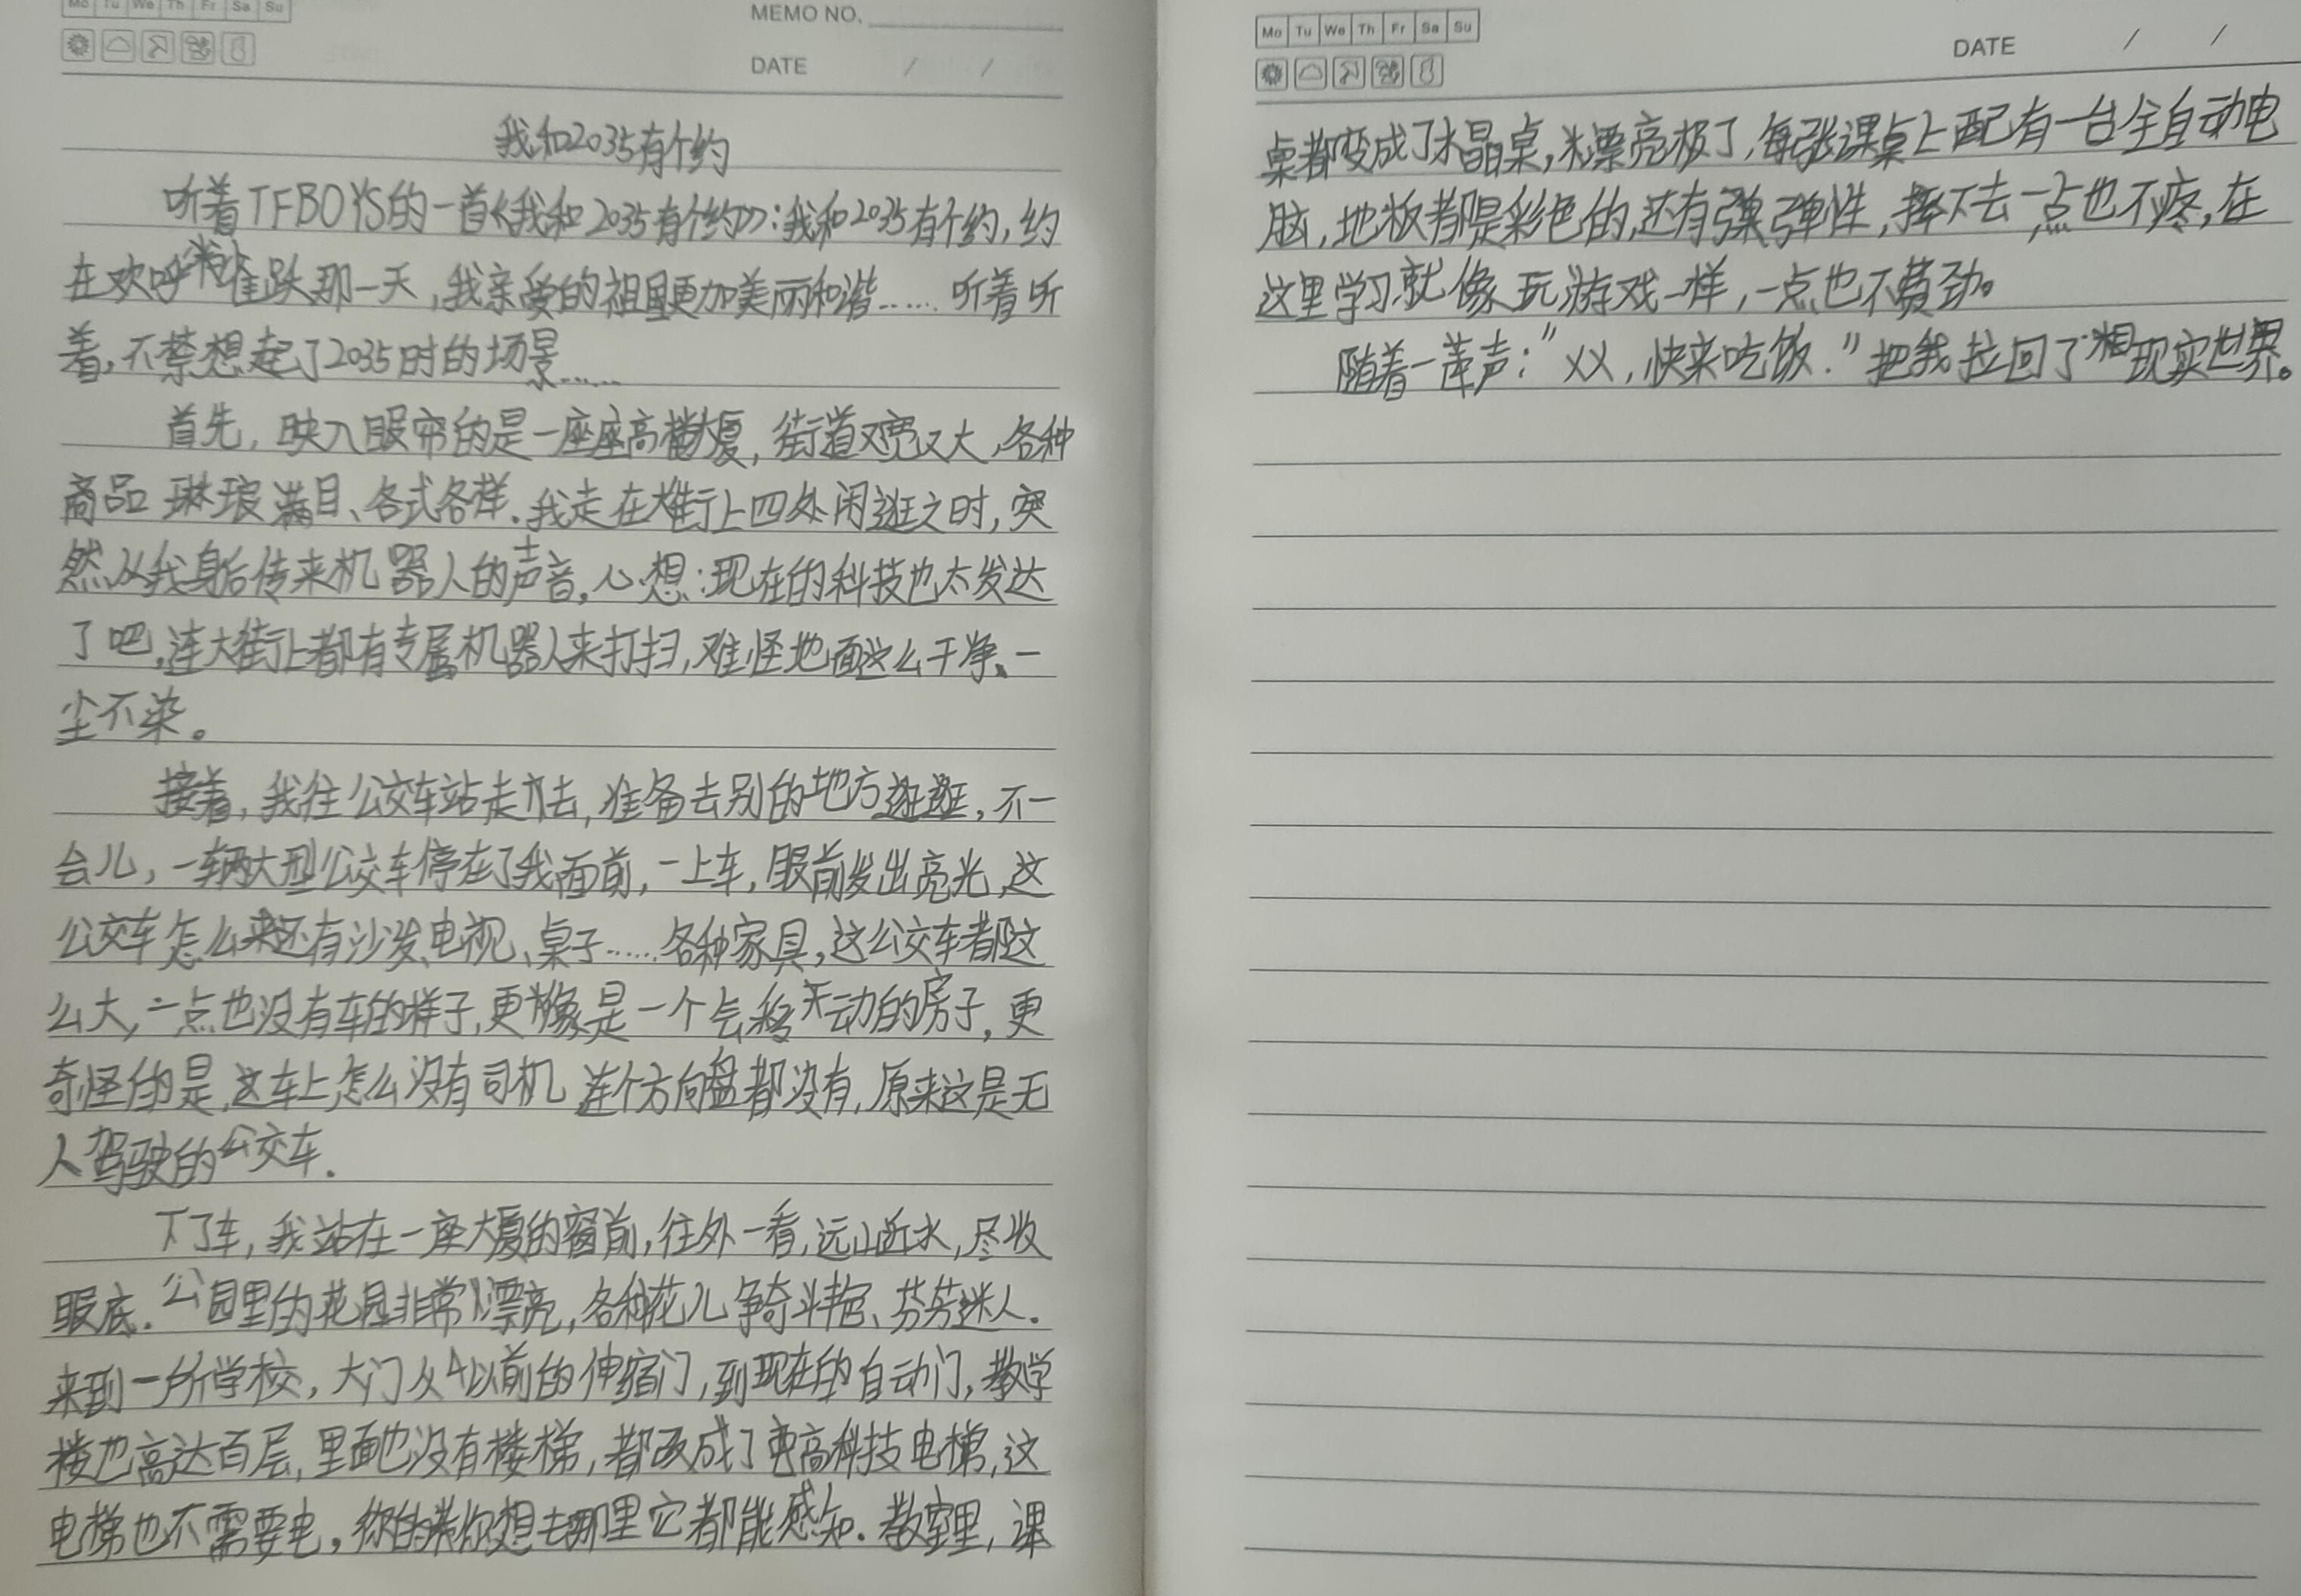 Mo Tu We Th Fr Sa Su
MEMO NO.
DATE / /
我和2035有个约
听着TFBOYS的一首《我和2035有个约》：我和2035有个约，约
在欢呼雀跃那一天，我亲爱的祖国更加美丽和谐……听着听
着，不禁想起了2035时的场景……
首先，映入眼帘的是一座座高楼大厦，街道又宽又大，各种
商品琳琅满目、各式各样．我走在大街上四处闲逛之时，突
然从我身后传来机器人的声音，心想：现在的科技也太发达
了吧，连大街上都有专属机器人来打扫，难怪地面这么干净、一
尘不染。
接着，我往公交车站走去，准备去别的地方逛逛，不一
会儿，一辆大型公交车停在了我面前，一上车，眼前发出亮光，这
公交车怎么还有沙发、电视、桌子……各种家具，这公交车都这
么大，一点也没有车的样子，更像是一个会移动的房子，更
奇怪的是，这车上怎么没有司机 连个方向盘都没有，原来这是无
人驾驶的公交车．
下了车，我站在一座大厦的窗前，往外一看，远山近水，尽收
眼底．公园里的花园非常漂亮，各种花儿争奇斗艳、芬芳迷人．
来到一所学校，大门从以前的伸缩门，到现在的自动门，教学
楼也高达百层，里面也没有楼梯，都改成了高科技电梯，这
电梯也不需要电，你想去哪里它都能感知．教室里，课
Mo Tu We Th Fr Sa Su
DATE / /
桌都变成了水晶桌，漂亮极了，每张课桌上配有一台全自动电
脑，地板都是彩色的，还有弹性，摔下去一点也不疼，在
这里学习就像玩游戏一样，一点也不费劲。
随着一声：“XX，快来吃饭．”把我拉回了现实世界。